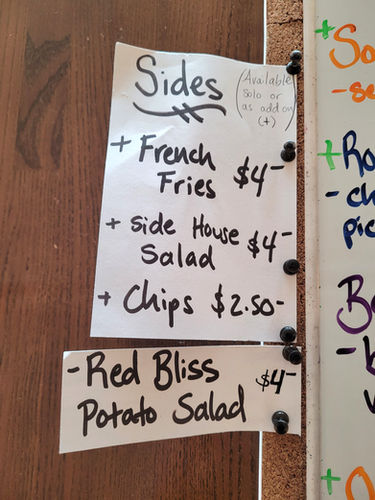 Sides
(Available
solo or
as add on
(+)
+ French
Fries $4-
+ Side House
Salad $4-
+ Chips $2.50-
- Red Bliss
Potato Salad $4-
+
+
- ch
pic
+